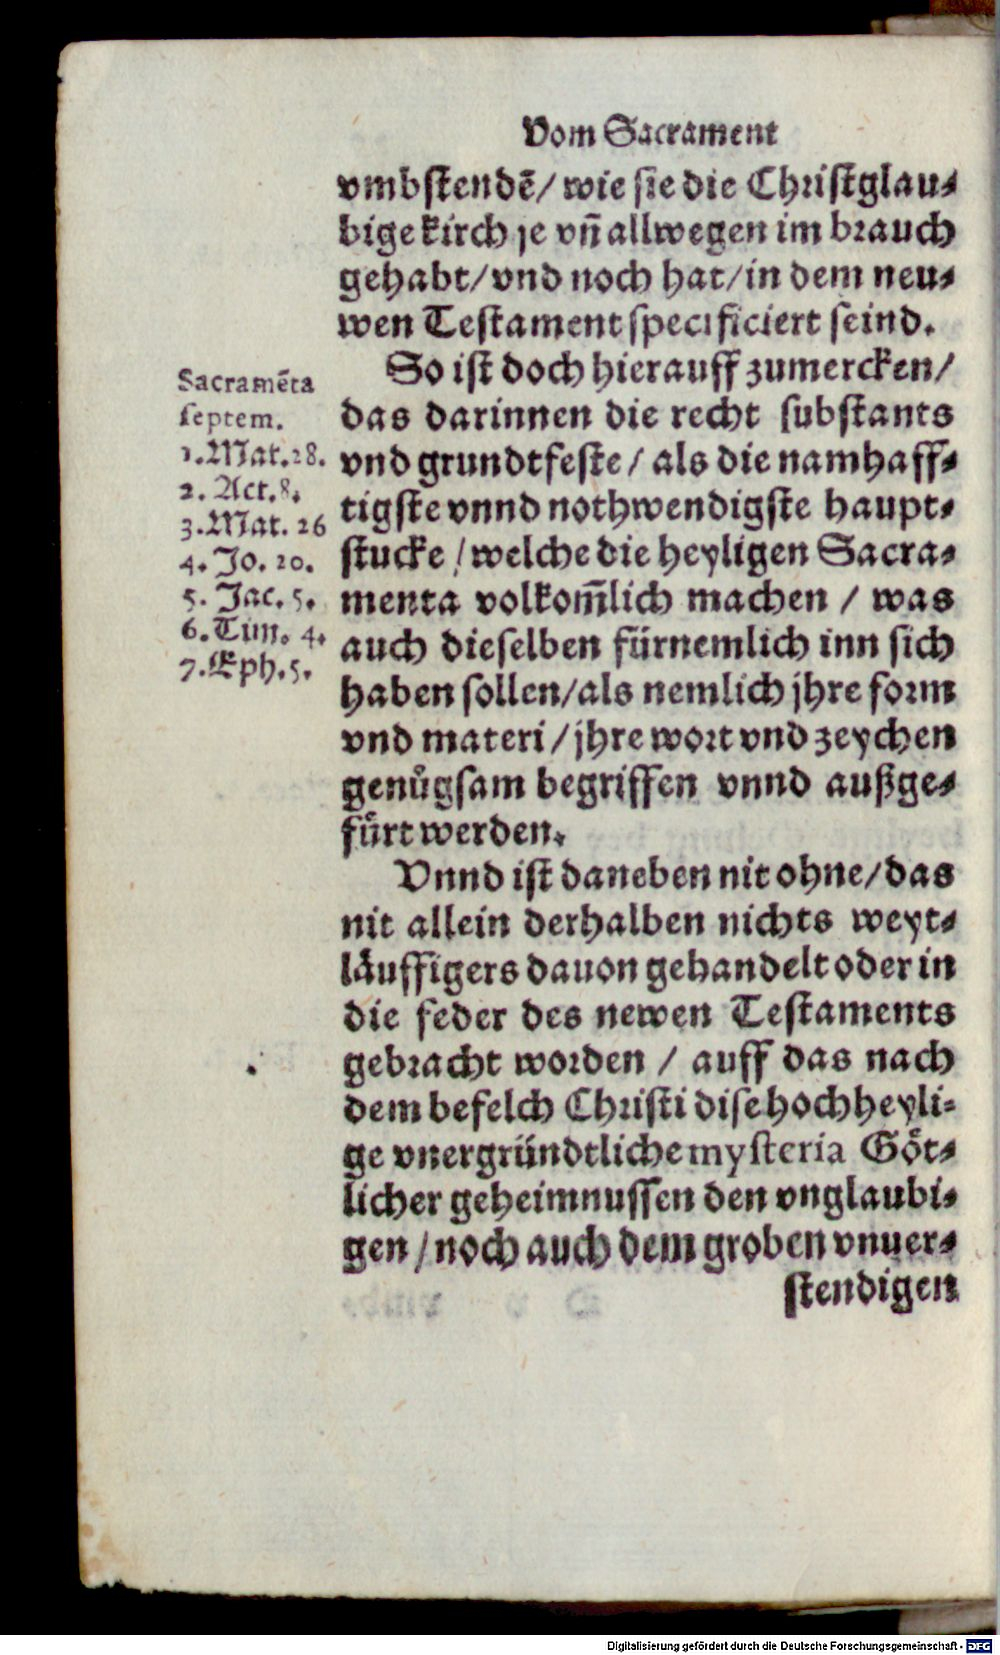 Vom Sacrament
vmbstendē/ wie sie die Christglau⸗
bige kirch je vn̄ allwegen im brauch
gehabt/ vnd noch hat/ in dem neu⸗
wen Testament specificiert seind.
So ist doch hierauff zumercken/
das darinnen die recht substants
vnd grundtfeste/ als die namhaff⸗
tigste vnnd nothwendigste haupt⸗
stucke/ welche die heyligen Sacra⸗
menta volkom̄lich machen / was
auch dieselben fürnemlich inn sich
haben sollen/ als nemlich jhre form
vnd materi/ jhre wort vnd zeychen
genůgsam begriffen vnnd außge⸗
fürt werden.
Sacramēta
septem.
1. Mat. 28.
2. Act. 8.
3. Mat. 26
4. Jo. 20.
5. Jac. 5.
6. Tim. 4.
7. Eph. 5.
Vnnd ist daneben nit ohne/ das
nit allein derhalben nichts weyt⸗
läuffigers dauon gehandelt oder in
die feder des newen Testaments
gebracht worden / auff das nach
dem befelch Christi dise hochheyli⸗
ge vnergründtliche mysteria Göt⸗
licher geheimnussen den vnglaubi⸗
gen/ noch auch dem groben vnuer⸗
stendigen
Digitalisierung gefördert durch die Deutsche Forschungsgemeinschaft - DFG